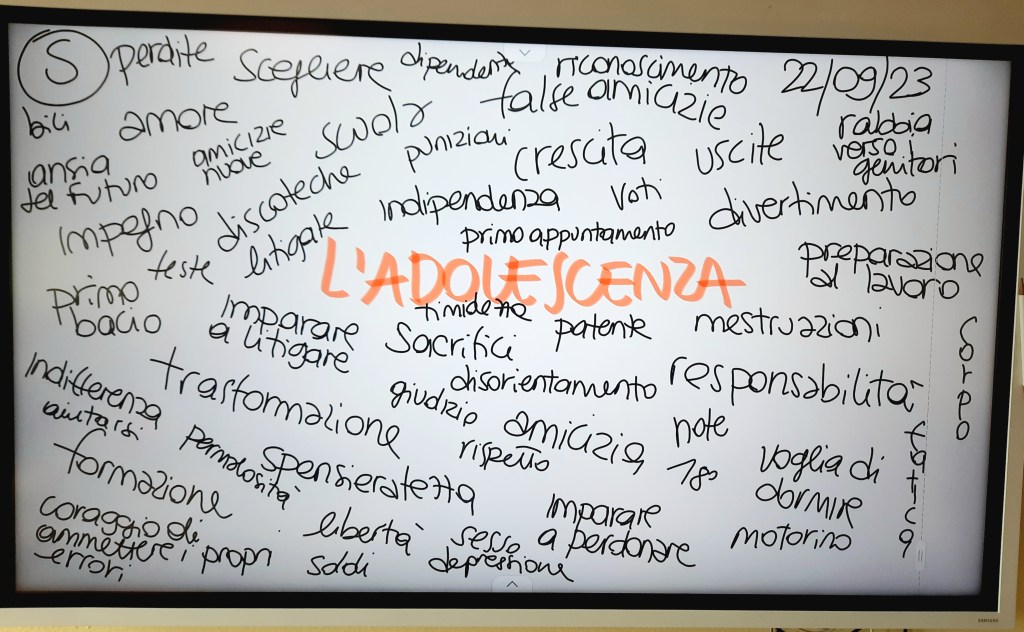 S perdite scegliere dipendenze riconoscimento 22/09/23
bili amore amicizie nuove scuola false amicizie
ansia del futuro punizioni crescita uscite rabbia verso genitori
impegno discoteche indipendenza voti divertimento
feste litigate primo appuntamento
L'ADOLESCENZA preparazione al lavoro
primo bacio imparare a litigare timidezza sacrifici patente mestruazioni corpo
indifferenza trasformazione giudizio disorientamento responsabilità
aiutarsi permalosità rispetto amicizia note fatica
formazione spensieratezza 18º voglia di dormire
coraggio di ammettere i propri errori libertà sesso imparare a perdonare motorino
soldi depressione
SAMSUNG